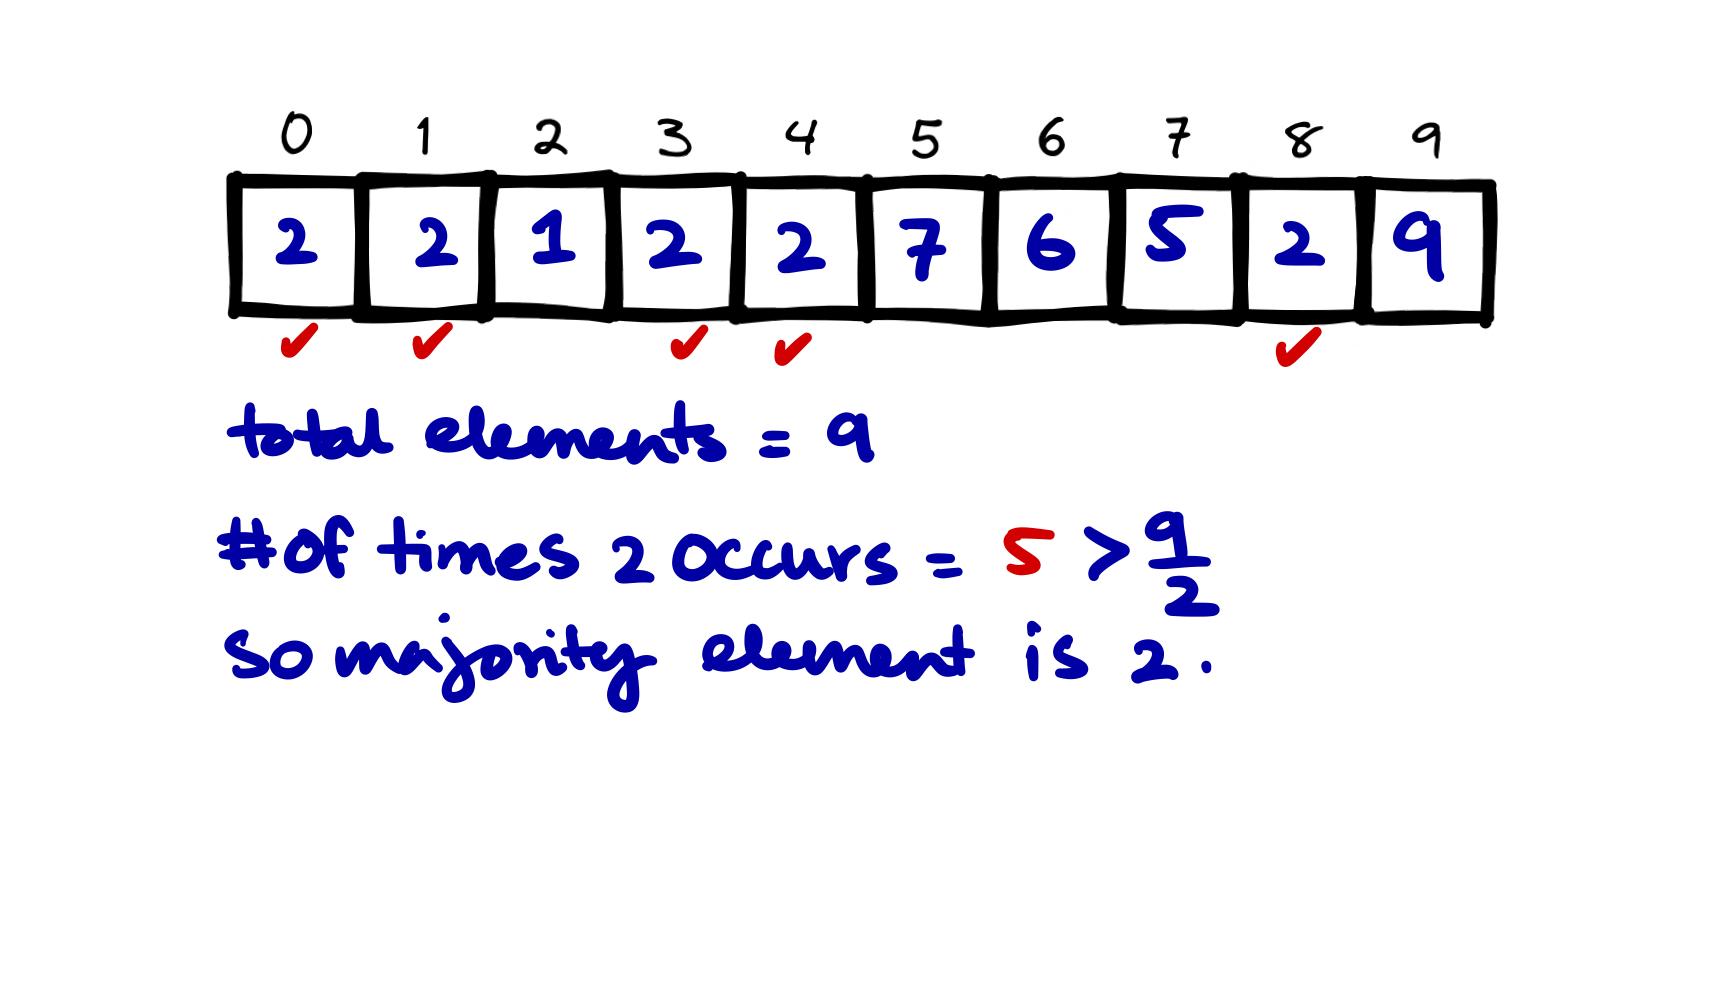 0 1 2 3 4 5 6 7 8 9
2 2 1 2 2 7 6 5 2 9
total elements = 9
# of times 2 occurs = 5 > 9/2
so majority element is 2.